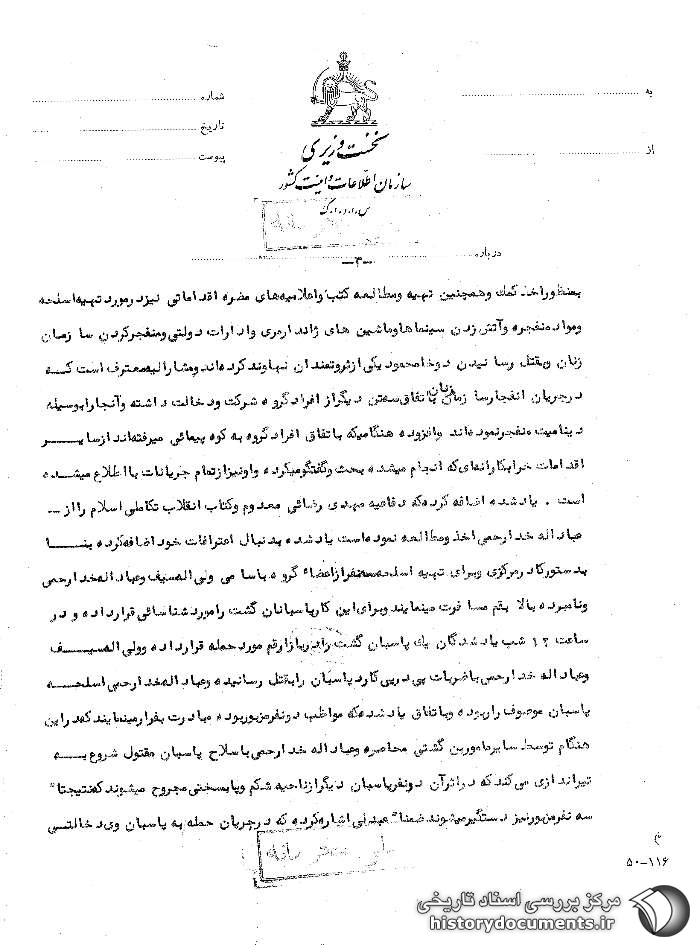 به
شماره
تاریخ
از
پیوست
نخست وزیری
سازمان اطلاعات و امنیت کشور
س.ا.و.ا.ک
درباره
-۳-
بمنظور اخذ کمک وهمچنین تهیه ومطالعه کتب واعلامیه‌های مضره اقداماتی نیزدرمورد تهیه اسلحه
ومواد منفجره وآتش زدن سینماها وماشین های ژاندارمری وادارات دولتی ومنفجرکردن سا زمان
زنان وبقتل رسا نیدن دوخا محمود یکی ازثروتمندان نهاوند کرده‌اند ومشارالیه معترف است کــه
درجریان انفجارسا زمان زنان باتفاق سه‌تن دیگراز افراد گروه شرکت ودخالت داشته وآنجارابوسیله
دینامیت منفجرنموده‌اند وافزوده هنگامیکه باتفاق افراد گروه به کوه پیمائی میرفته‌اند ازسایــر
اقدامات خرابکارانه‌ای که انجام میشده بحث وگفتگومیکرده واونیزازتمام جریانات بااطلاع میشده
است . یادشده اضافه کرده که دفاعیه مهدی رضائی معدوم وکتاب انقلاب تکاملی اسلام رااز ـــ
عبداله خدارحمی اخذ ومطالعه نموده‌است یادشده بدنبال اعترافات خود اضافه کرده بنــــا
بدستورکادرمرکزی وبرای تهیه اسلحه سه‌نفرازاعضاء گروه باسا می ولی اله سیف وعبداله خدارحمی
ونامبرده بالا بقم مسا فرت مینمایند وبرای این کارپاسبانان گشت رامورد شناسائی قرارداده و در
ساعت ۱۲ شب یادشدگان یک پاسبان گشت رادربازارقم مورد حمله قرارداده وولی اله سیــف
وعبداله خدارحمی باضربات پی درپی کارد پاسبان رابقتل رسانیده وعبداله خدارحمی اسلحــه
پاسبان موصوف راربوده وباتفاق یادشده که مواظب دونفرمزبوربوده مبادرت بفرارمینمایند که دراین
هنگام توسط سایرمامورین گشتی محاصره وعبداله خدارحمی باسلاح پاسبان مقتول شروع بــه
تیراندازی می کند که دراثرآن دونفرپاسبان دیگرازناحیه شکم وپابسختی مجروح میشوند که‌نتیجتا"
سه نفرمزبورنیز دستگیرمیشوند ضمنا" عبدلی اشاره کرده که درجریان حمله به پاسبان وی دخالتــی
۵۰-۱۱۶
مرکز بررسی اسناد تاریخی
historydocuments.ir